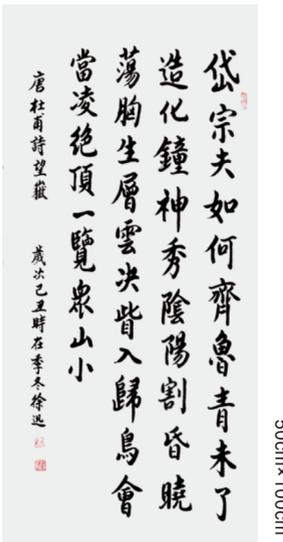 岱宗夫如何齊魯青未了
造化鐘神秀陰陽割昏曉
蕩胸生層雲決眥入歸鳥會
當凌絕頂一覽眾山小
唐杜甫詩望嶽 歲次己丑時在季冬徐迅
50cm×100cm